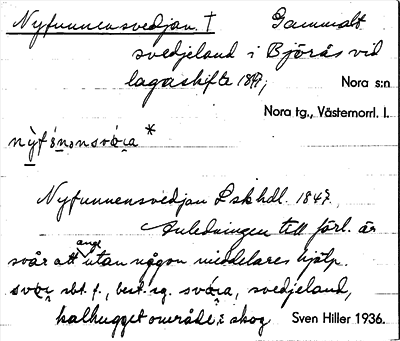 Nyfunnensvedjan † Gammalt
svedjeland i Björås vid
lagaskifte 1847,
Nora s:n
Nora tg., Västernorrl. l.
Nyfunnensvedjan Lskhdl. 1847.
Anledningen till förl. är
svår att ange utan någon meddelares hjälp.
sbt. f., best. sg. svedjeland,
kalhugget område i skog
Sven Hiller 1936.